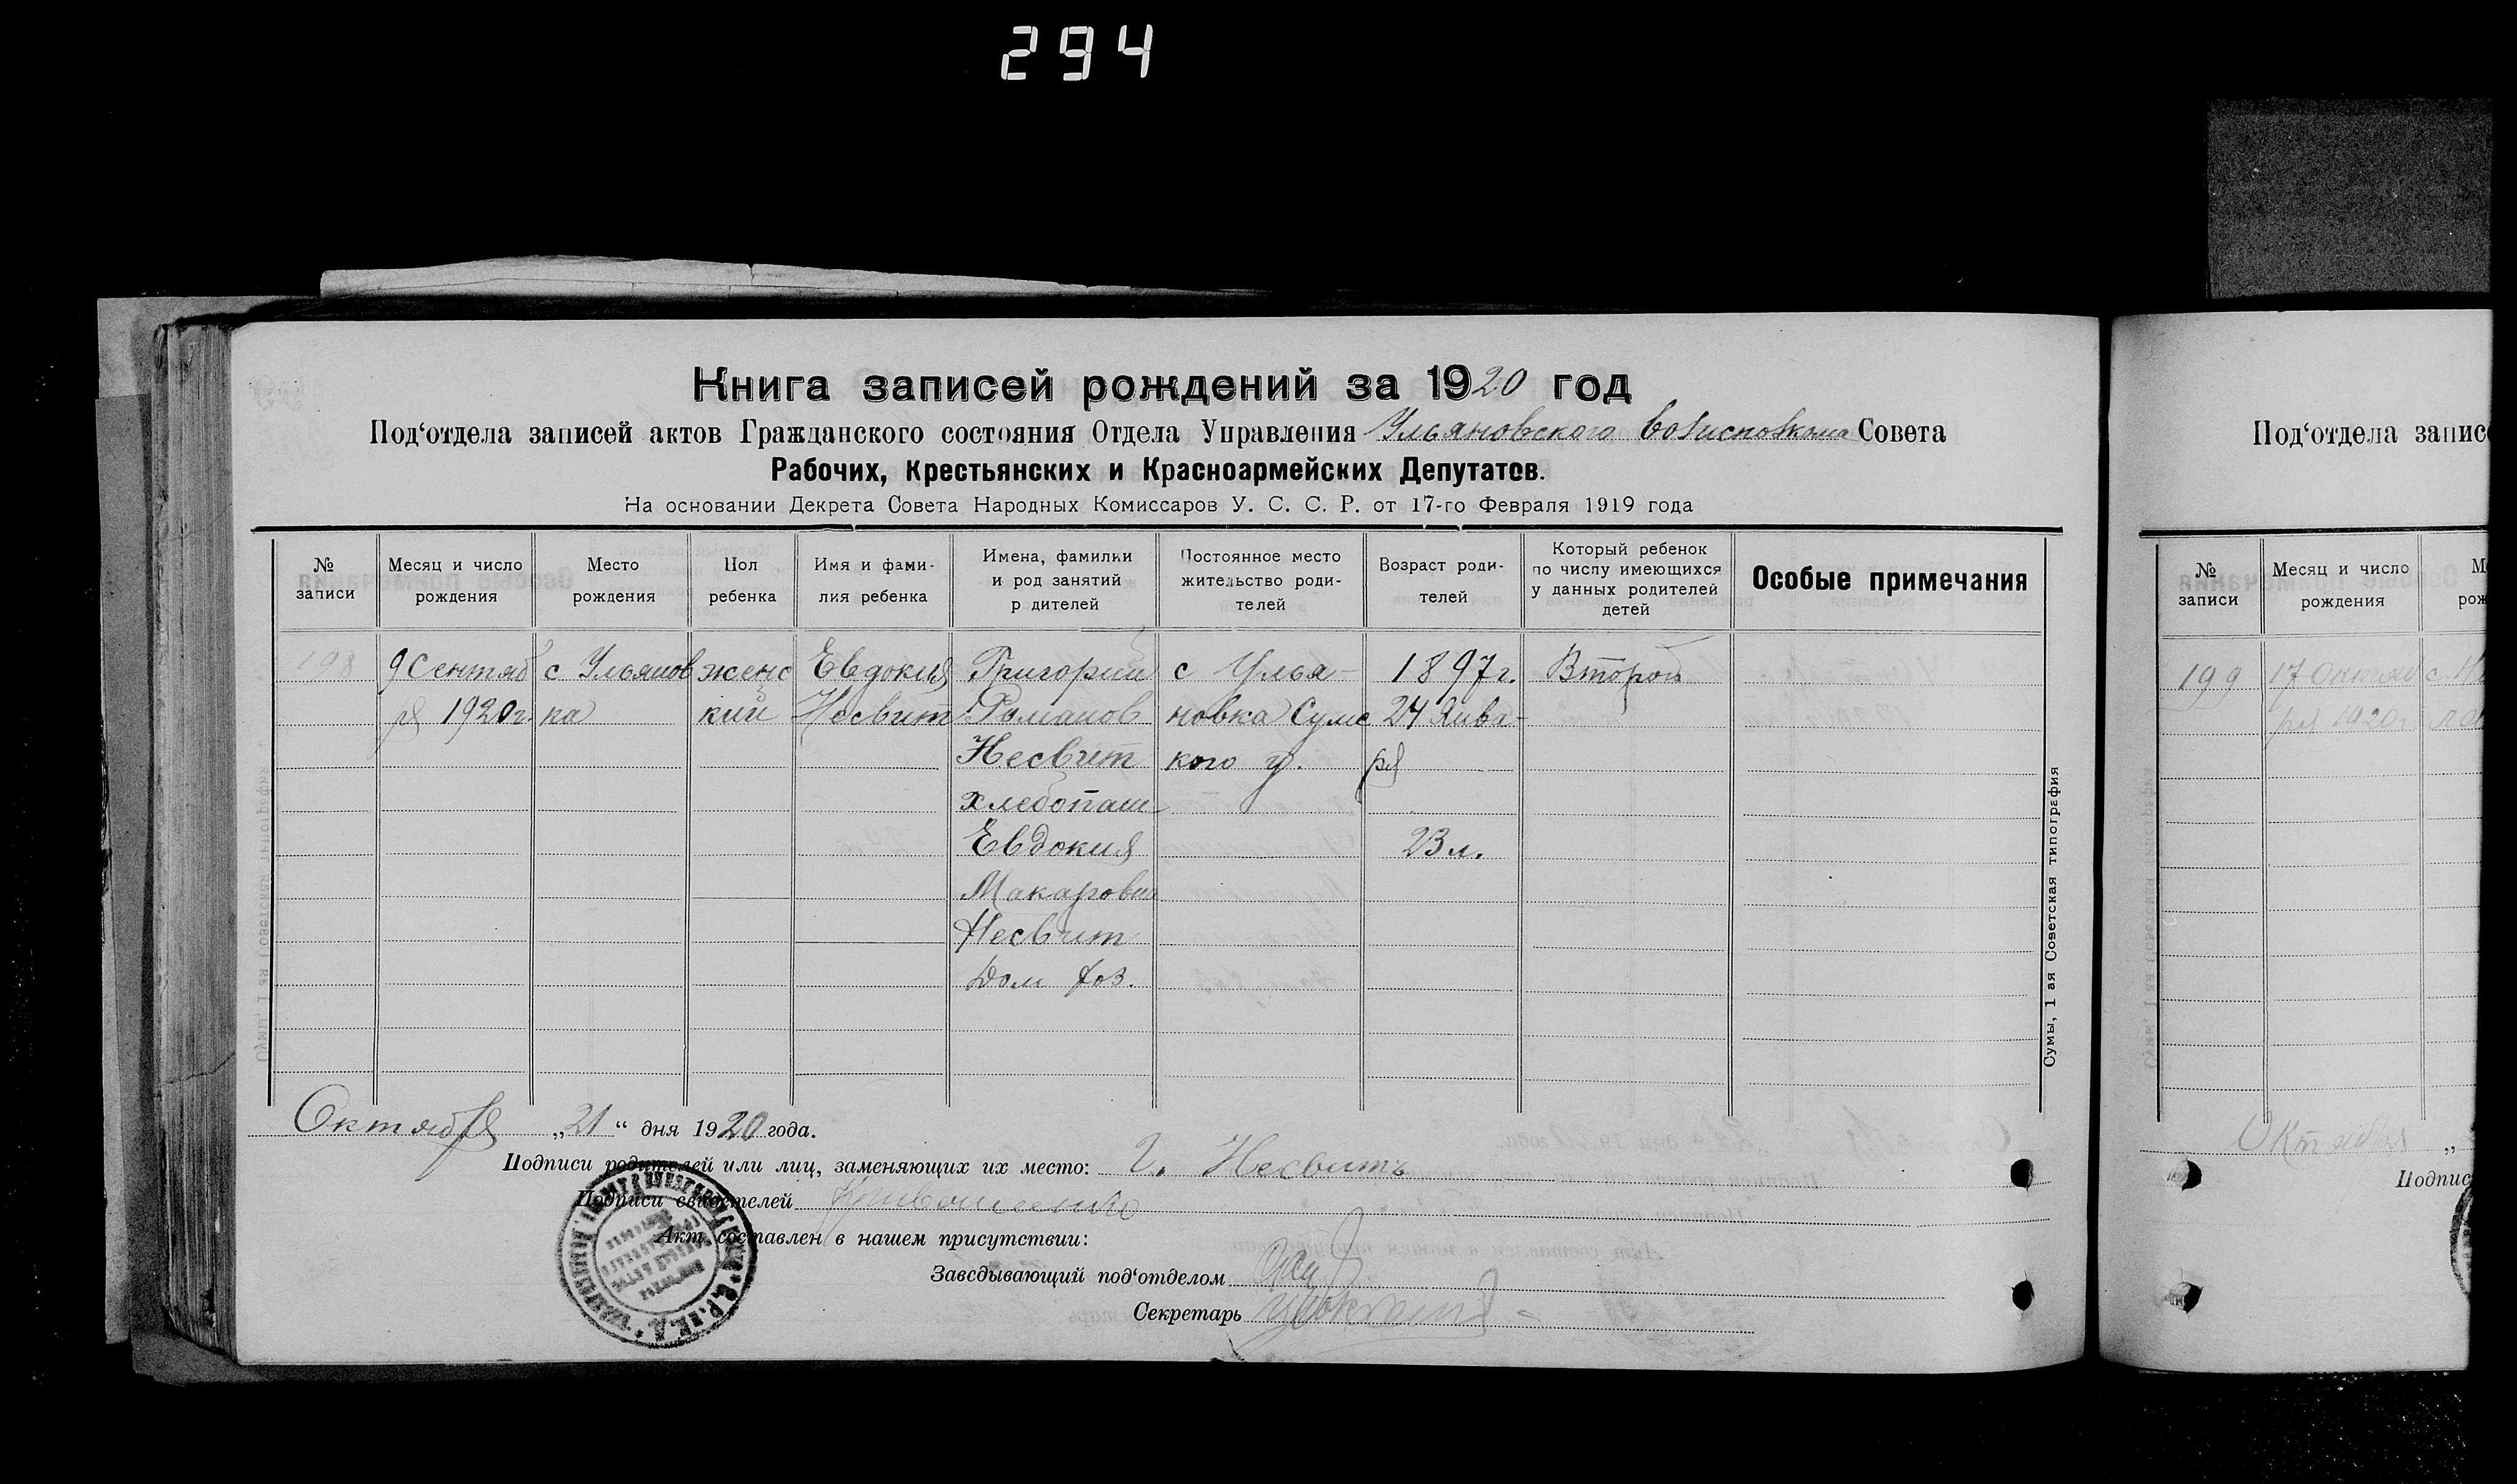 294
Книга записей рождений за 1920 год
Под‘отдела записей актов Гражданского состояния Отдела Управления Ульяновского волисполкома Совета
Рабочих, Крестьянских и Красноармейских Депутатов.
На основании Декрета Совета Народных Комиссаров У. С. С. Р. от 17-го Февраля 1919 года
№ записи
Месяц и число рождения
Место рождения
Пол ребенка
Имя и фами-лия ребенка
Имена, фамилии и род занятий р дителей
Постоянное место жительство роди-телей
Возраст роди-телей
Который ребенок по числу имеющихся у данных родителей детей
Особые примечания
198 9 Сентяб с Ульянов женс Евдокия Григорий с Улья- 1897г. Второй
ря 1920г. ка кий Несвит Романов новка Сумс 24 Янва-
Несвит кого у. ря
хлебопаш
Евдокия 23 л.
Макаровна
Несвит
Дом хоз.
Октября „21“ дня 1920 года.
Подписи родителей или лиц, заменяющих их место: Г. Несвитъ
Подписи свидетелей Кривошеенко
Акт составлен в нашем присутствии:
Заведывающий под‘отделом
Секретарь
Сумы, 1 ая Советская типография
Под‘отдела запис
№ записи
Месяц и число рождения
М
рож
199 17 Октяб с. Н
ря 1920г
Октября „
Подпис